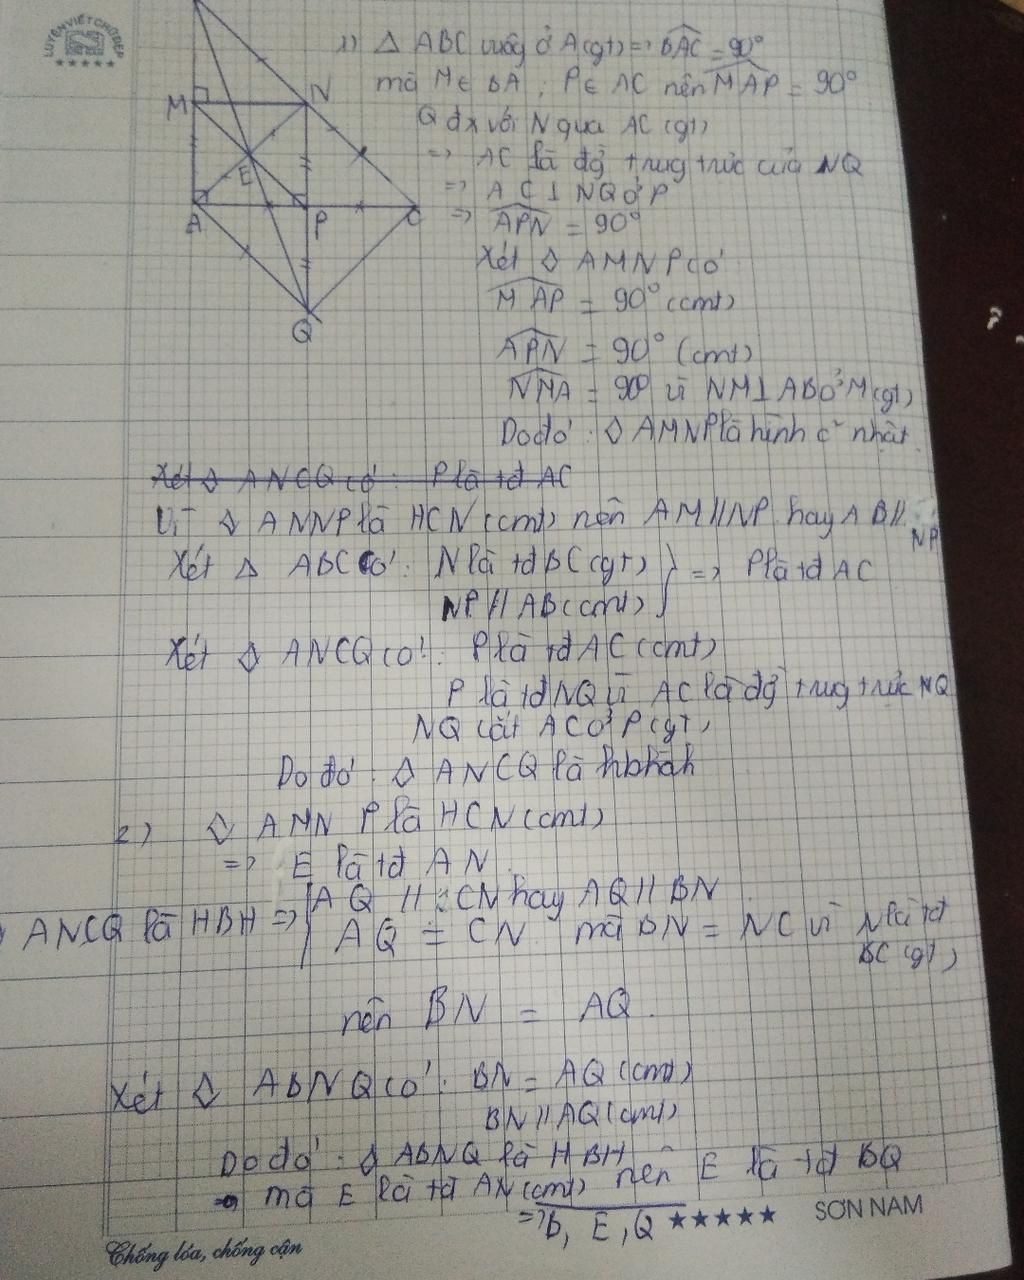 LUYỆN VIẾT CHỮ ĐẸP
1) Δ ABC vuông ở A(gt) => BAC = 90°
mà M ∈ BA ; P ∈ AC nên MAP = 90°
Q đx với N qua AC (gt)
=> AC là đg trug trực của NQ
=> AC ⊥ NQ ở P
=> APN = 90°
Xét ◇ AMNP có
MAP = 90° (cmt)
APN = 90° (cmt)
NMA = 90° vì NM ⊥ AB ở M (gt)
Do đó : ◇ AMNP là hình c² nhật
M N E A P C Q
Xét ◇ ANCQ có : P là tđ AC
Vì ◇ ANNP là HCN (cmt) nên AM // NP hay AB // NP
Xét Δ ABC có : N là tđ BC (gt)
NP // AB (cmt) } => P là tđ AC
Xét ◇ ANCQ có : P là tđ AC (cmt)
P là tđ NQ vì AC là đg trug trực NQ
NQ cắt AC ở P (gt)
Do đó : ◇ ANCQ là hbhàh
2) ◇ AMNP là HCN (cmt)
=> E là tđ AN.
ANCQ là HBH => { AQ // CN hay AQ // BN
AQ = CN mà BN = NC vì N là tđ
BC (gt)
nên BN = AQ.
Xét ◇ ABNQ có : BN = AQ (cmt)
BN // AQ (cmt)
Do đó : ◇ ABNQ là HBH
mà E là tđ AN (cmt) nên E là tđ BQ
=> B, E, Q
SƠN NAM
Chống lóa, chống cận